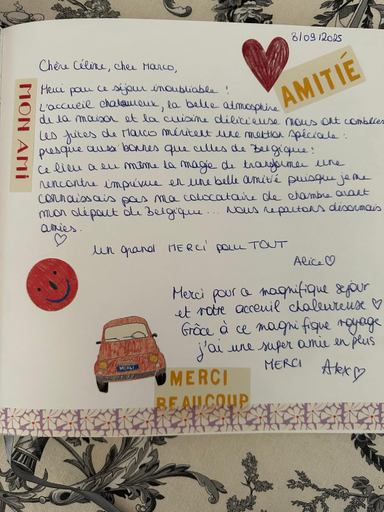 8/09/2025
AMITIÉ
MON AMI
Chère Céline, cher Marco,
Merci pour ce séjour inoubliable !
L'accueil chaleureux, la belle atmosphère
de la maison et la cuisine délicieuse nous ont comblées
Les frites de Marco méritent une mention spéciale :
presque aussi bonnes que celles de Belgique !
Ce lieu a eu même la magie de transformer une
rencontre imprévue en une belle amitié puisque je ne
connaissais pas ma colocataire de chambre avant
mon départ de Belgique... Nous repartons désormais
amies.
Un grand MERCI pour TOUT
Alice
Merci pour ce magnifique séjour
et votre acceuil chaleureuse
Grâce à ce magnifique voyage
j'ai une super amie en plus
MERCI Alex
MERCI
MERCI
BEAUCOUP